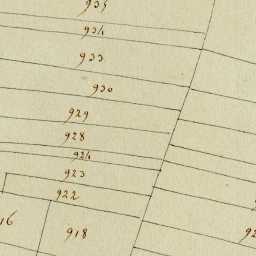 935
934
933
930
929
928
924
923
922
16
918
92